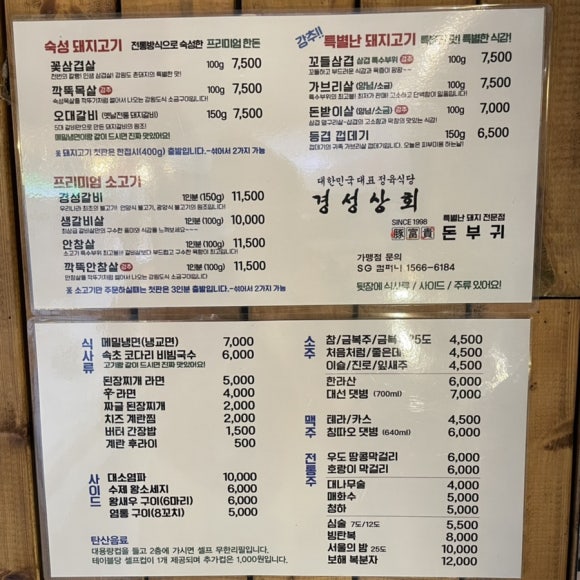 숙성 돼지고기 전통방식으로 숙성한 프리미엄 한돈
꽃삼겹살 100g 7,500
깍뚝목살 강추 100g 7,500
숙성목살을 깍뚜기처럼 썰어서 나오는 강원도식 소금구이입니다!
오대갈비 (옛날전통 돼지갈비) 150g 7,500
5대 갈비만으로 만든 돼지갈비의 원조!
메밀냉면이랑 같이 드시면 진짜 맛있어요!
※ 돼지고기 첫판은 한접시(400g) 출발입니다.-섞어서 2가지 가능
강추!! 특별난 돼지고기 특별한 맛! 특별한 식감!
꼬들삼겹 삼겹 특수부위 강추 100g 7,500
꼬들하고 부드러운 식감과 육즙이 팡팡~
가브리살 (양념/소금) 100g 7,500
돈받이살 (양념/소금) 강추 100g 7,000
등겹 껍데기 150g 6,500
프리미엄 소고기
경성갈비 1인분 (150g) 11,500
생갈비살 1인분 (100g) 10,000
안창살 강추 1인분 (100g) 11,500
깍뚝안창살 강추 1인분 (100g) 11,500
안창살을 깍뚜기처럼 썰어서 나오는 강원도식 소금구이입니다!
※ 소고기만 주문하실때는 첫판은 3인분 출발입니다.-섞어서 2가지 가능
대한민국 대표 정육식당
경성상회
SINCE 1998
특별난 돼지 전문점
豚富貴 돈부귀
가맹점 문의
SG 컴퍼니 1566-6184
뒷장에 식사류 / 사이드 / 주류 있어요!
식사류
메밀냉면(냉교면) 7,000
속초 코다리 비빔국수 6,000
고기랑 같이 드시면 진짜 맛있어요!
된장찌개 라면 5,000
辛라면 4,000
짜글 된장찌개 2,000
치즈 계란찜 2,000
버터 간장밥 1,500
계란 후라이 500
사이드
대소염파 10,000
수제 왕소세지 6,000
왕새우 구이(6마리) 6,000
염통 구이(8꼬치) 5,000
탄산음료
대용량컵을 들고 2층에 가시면 셀프 무한리필입니다.
테이블당 셀프컵이 1개 제공되며 추가컵은 1,000원입니다.
소주
참/금복주/금복 25도 4,500
처음처럼/좋은데 4,500
이슬/진로/잎새주 4,500
한라산 6,000
대선 댓병 (700ml) 7,000
맥주
테라/카스 4,500
칭따오 댓병 (640ml) 6,000
전통주
우도 땅콩막걸리 6,000
호랑이 막걸리 6,000
대나무술 4,000
매화수 5,000
청하 5,000
심술 7도/12도 5,500
빙탄복 8,000
서울의 밤 25도 10,000
보해 복분자 12,000